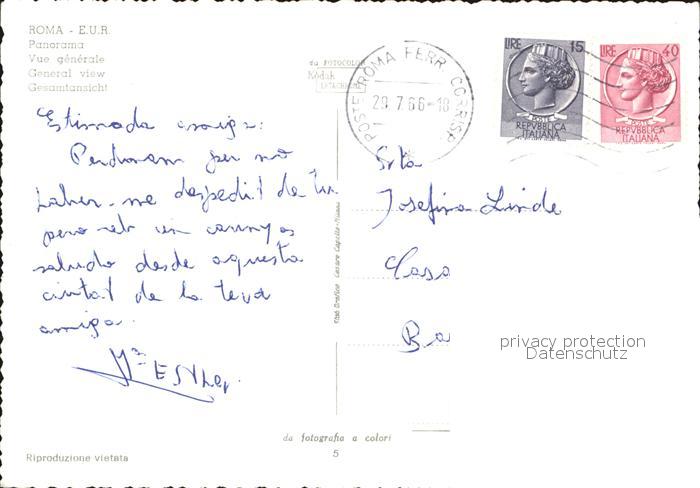 ROMA - E.U.R.
Panorama
Vue générale
General view
Gesamtansicht
da FOTOCOLOR
Kodak
EKTACHROME
POSTE ROMA FERR. CORRISP.
29.7.66-18
LIRE 15
POSTE
REPVBBLICA
ITALIANA
LIRE 40
POSTE
REPVBBLICA
ITALIANA
Estimada amiga:
Perdonam per no
haber-me despedit de tu
pero reb un carinyos
saludo desde aquesta
ciutat de la teva
amiga.
Mª ESther
Srta
Josefina Linde
Casa
Ba
privacy protection
Datenschutz
Stab. Grafico Cesare Capello - Milano
da fotografia a colori
5
Riproduzione vietata